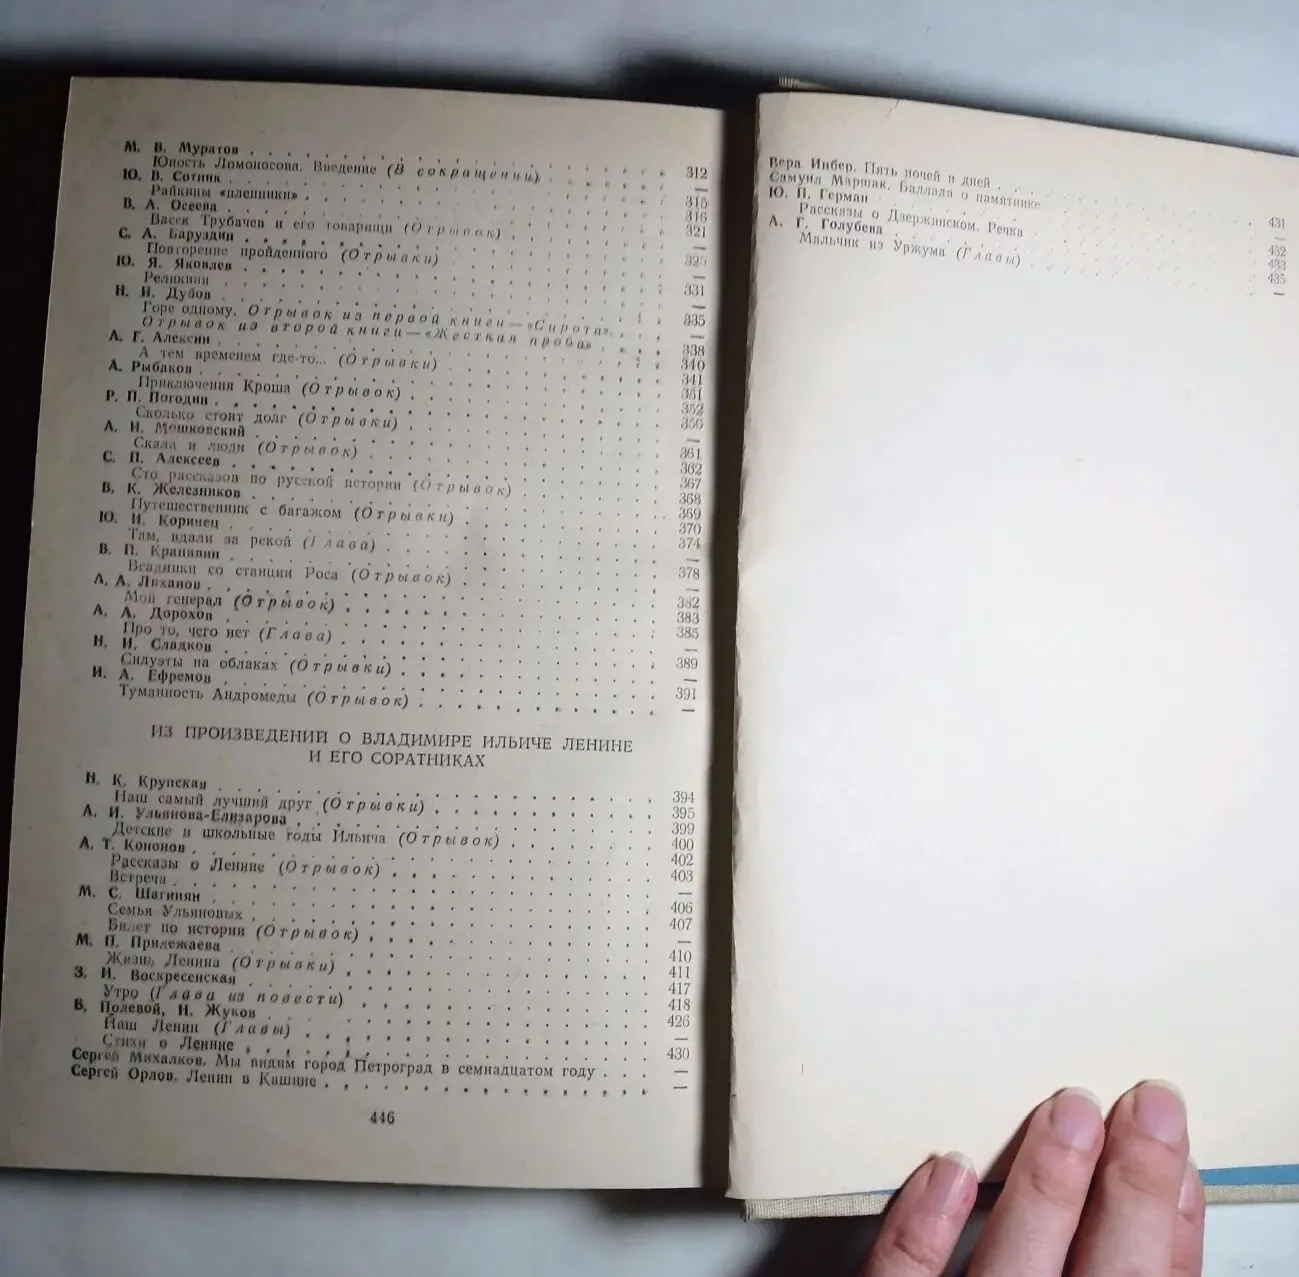 М. В. Муратов . . . . . . . . . . 312
Юность Ломоносова. Введение (В сокращении) . . . . —
Ю. В. Сотник . . . . . . . . . . 315
Райкины «пленники» . . . . . . . . . . 316
В. А. Осеева . . . . . . . . . . 321
Васек Трубачев и его товарищи (Отрывок) . . . . —
С. А. Баруздин . . . . . . . . . . 325
Повторение пройденного (Отрывки) . . . . —
Ю. Я. Яковлев . . . . . . . . . . 331
Реликвия . . . . . . . . . . —
Н. И. Дубов . . . . . . . . . . 335
Горе одному. Отрывок из первой книги — «Сирота» . . . —
Отрывок из второй книги — «Жесткая проба» . . . . 338
А. Г. Алексин . . . . . . . . . . 340
А тем временем где-то... (Отрывки) . . . . 341
А. Рыбаков . . . . . . . . . . 351
Приключения Кроша (Отрывок) . . . . 352
Р. П. Погодин . . . . . . . . . . 356
Сколько стоит долг (Отрывки) . . . . —
А. И. Мошковский . . . . . . . . . . 361
Скала и люди (Отрывок) . . . . 362
С. П. Алексеев . . . . . . . . . . 367
Сто рассказов по русской истории (Отрывок) . . . . 368
В. К. Железников . . . . . . . . . . 369
Путешественник с багажом (Отрывки) . . . . 370
Ю. И. Коринец . . . . . . . . . . 374
Там, вдали за рекой (Глава) . . . . —
В. П. Крапивин . . . . . . . . . . 378
Всадники со станции Роса (Отрывок) . . . . —
А. А. Лиханов . . . . . . . . . . 382
Мой генерал (Отрывок) . . . . 383
А. А. Дорохов . . . . . . . . . . 385
Про то, чего нет (Глава) . . . . —
Н. И. Сладков . . . . . . . . . . 389
Силуэты на облаках (Отрывки) . . . . —
И. А. Ефремов . . . . . . . . . . 391
Туманность Андромеды (Отрывок) . . . . —
ИЗ ПРОИЗВЕДЕНИЙ О ВЛАДИМИРЕ ИЛЬИЧЕ ЛЕНИНЕ
И ЕГО СОРАТНИКАХ
Н. К. Крупская . . . . . . . . . . 394
Наш самый лучший друг (Отрывки) . . . . 395
А. И. Ульянова-Елизарова . . . . . . . . . . 399
Детские и школьные годы Ильича (Отрывок) . . . . 400
А. Т. Кононов . . . . . . . . . . 402
Рассказы о Ленине (Отрывок) . . . . 403
Встреча . . . . . . . . . . —
М. С. Шагинян . . . . . . . . . . 406
Семья Ульяновых . . . . . . . . . . 407
Билет по истории (Отрывок) . . . . —
М. П. Прилежаева . . . . . . . . . . 410
Жизнь Ленина (Отрывки) . . . . 411
З. И. Воскресенская . . . . . . . . . . 417
Утро (Глава из повести) . . . . 418
Б. Полевой, Н. Жуков . . . . . . . . . . 426
Наш Ленин (Главы) . . . . —
Стихи о Ленине . . . . . . . . . . 430
Сергей Михалков. Мы видим город Петроград в семнадцатом году . . . —
Сергей Орлов. Ленин в Кашине . . . . . . . . . . —
446
Вера Инбер. Пять ночей и дней . . . . 431
Самуил Маршак. Баллада о памятнике . . . . 432
Ю. П. Герман . . . . . . . . . . 433
Рассказы о Дзержинском. Речка . . . . —
А. Г. Голубева . . . . . . . . . . 435
Мальчик из Уржума (Главы) . . . . —